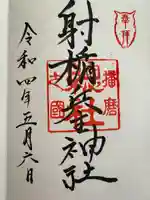 奉拝
射楯兵主神社
播磨
之國
令和四年五月六日